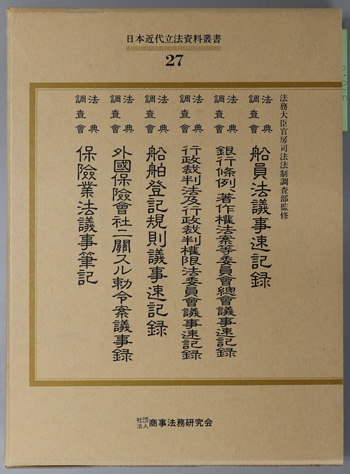 日本近代立法資料叢書
27
法務大臣官房司法法制調査部監修
法典調査會 船員法議事速記録
法典調査會 銀行條例、著作權法案等委員會總會議事速記録
法典調査會 行政裁判法及行政裁判權限法委員會議事速記録
法典調査會 船舶登記規則議事速記録
法典調査會 外國保險會社ニ關スル勅令案議事録
法典調査會 保險業法議事筆記
社団法人 商事法務研究会